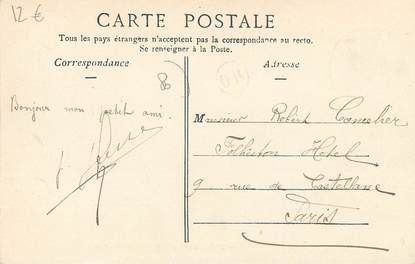 12 €
CARTE POSTALE
Tous les pays étrangers n'acceptent pas la correspondance au recto.
Se renseigner à la Poste.
Correspondance
Adresse
Bonjour mon petit ami.
Monsieur Robert
Hôtel
9 rue de Castellane
Paris